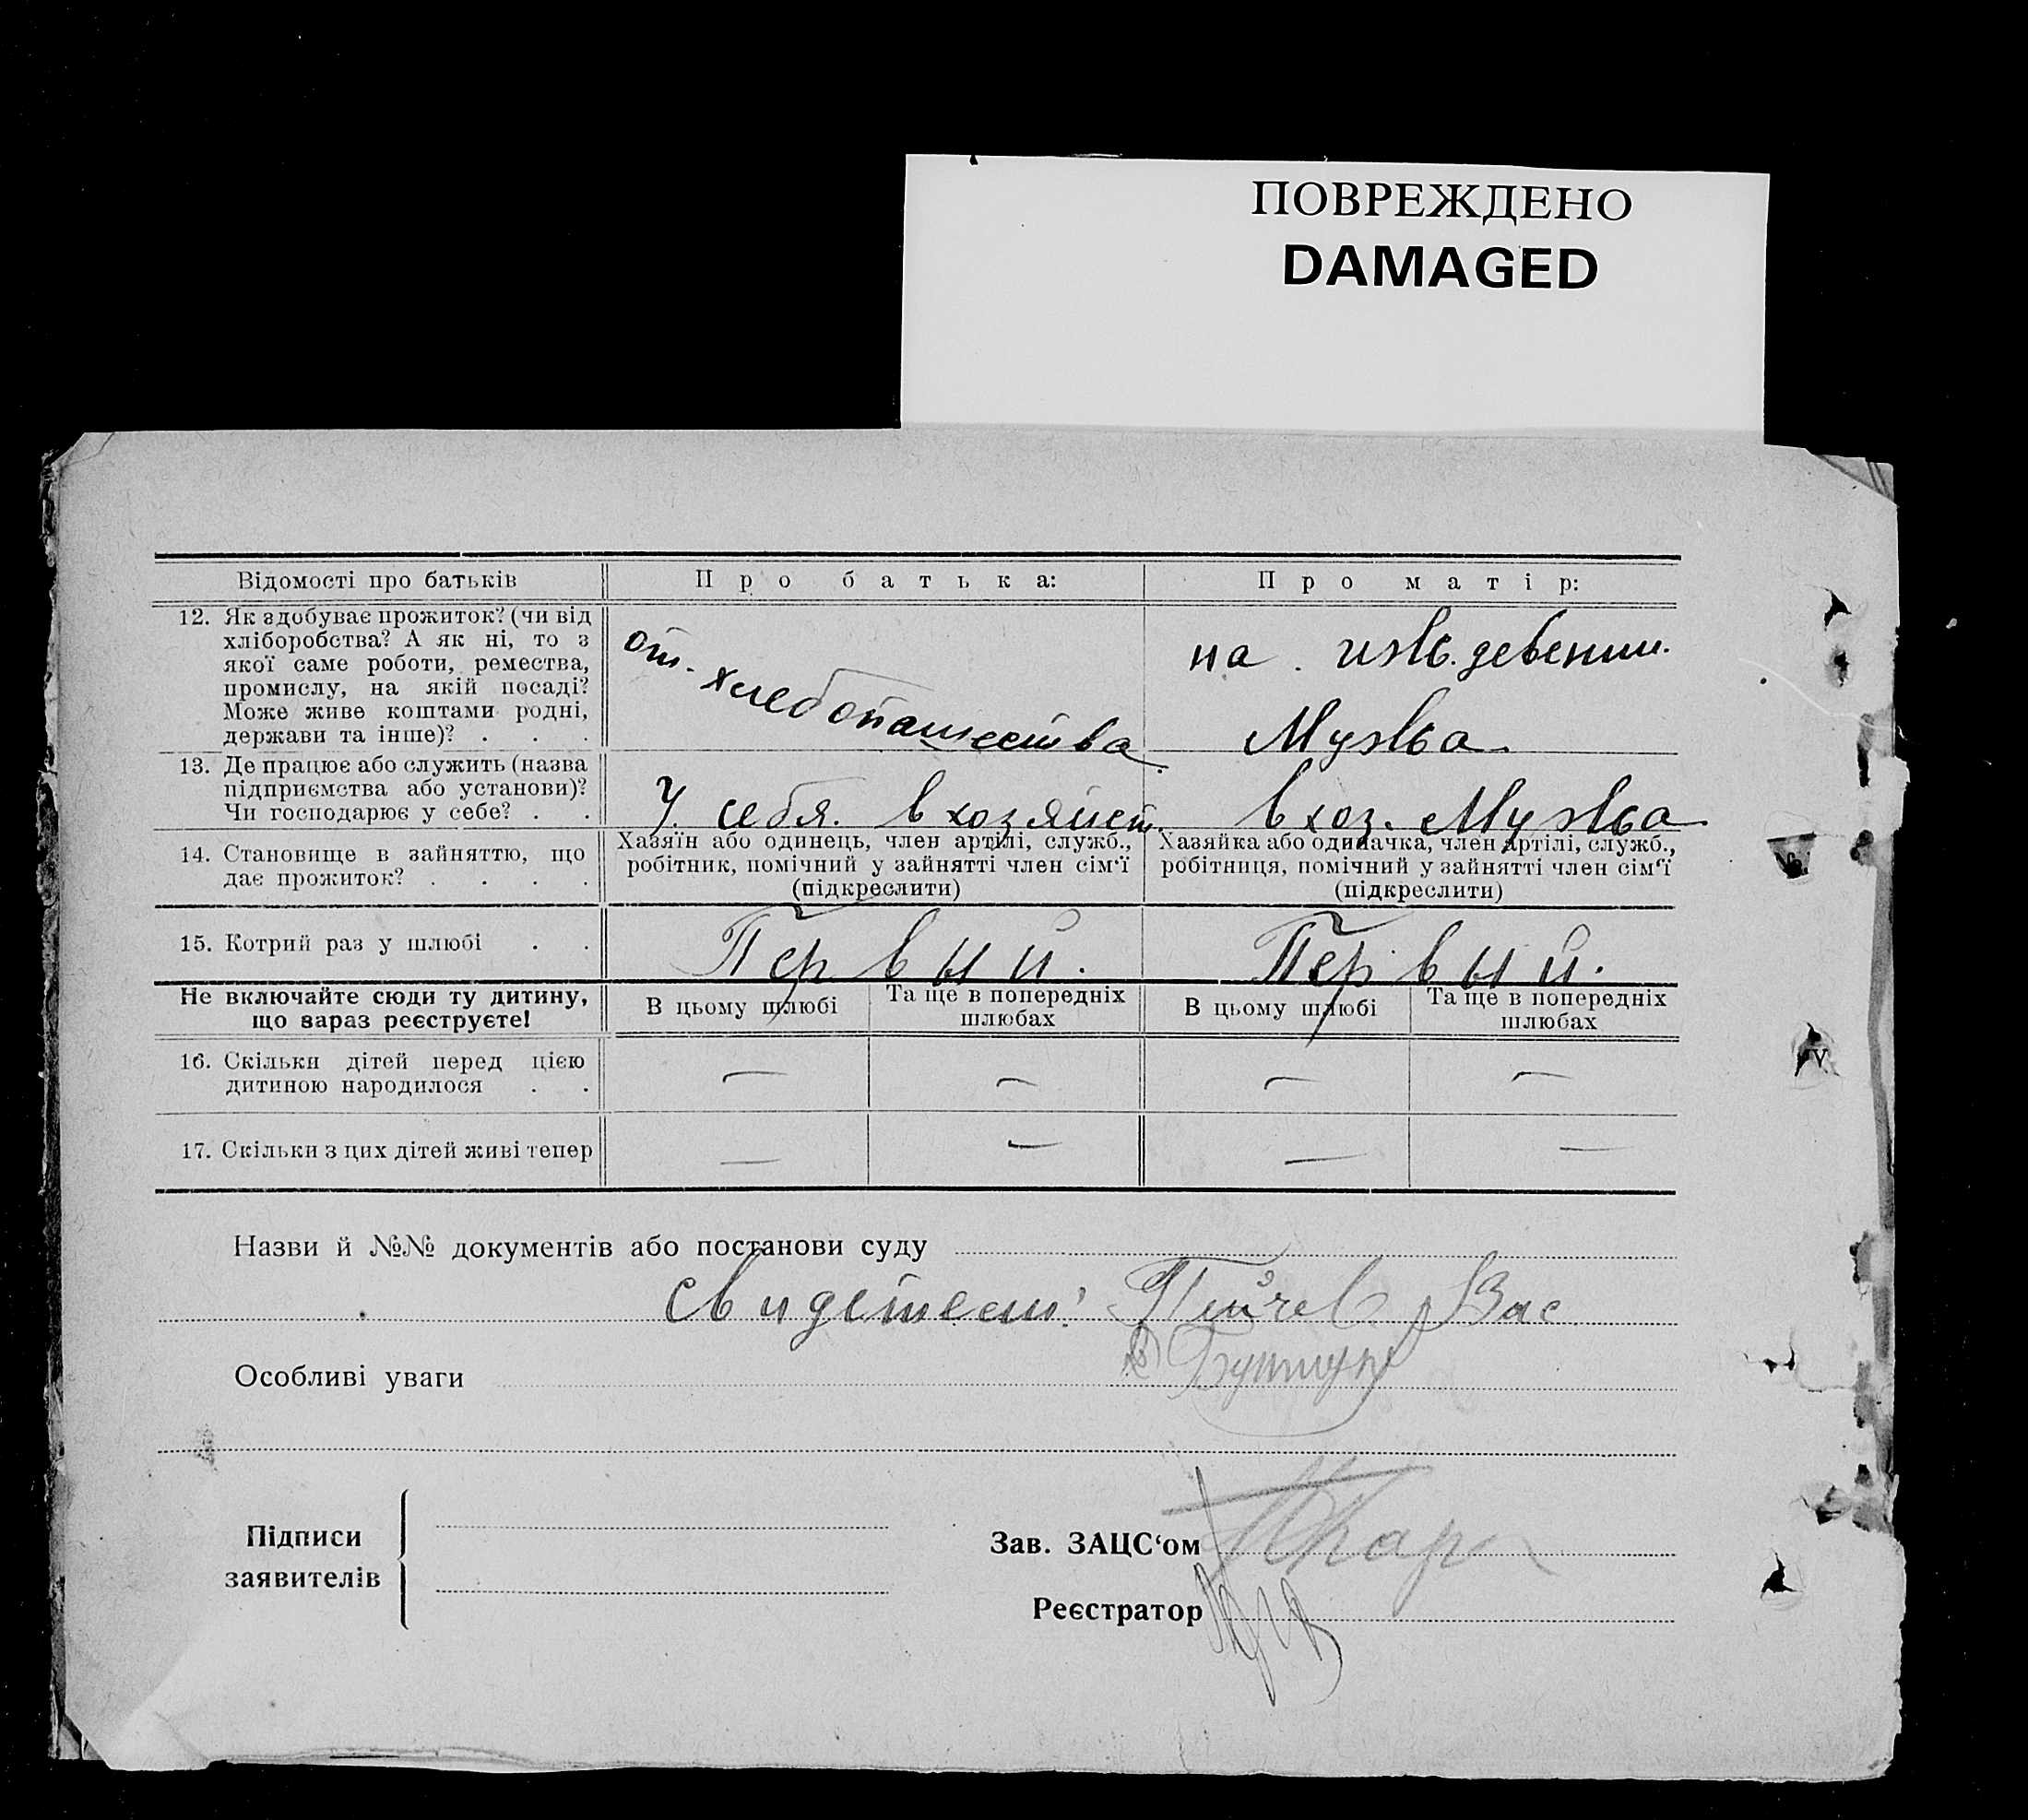 ПОВРЕЖДЕНО
DAMAGED
Відомості про батьків
Про батька:
Про матір:
12. Як здобуває прожиток? (чи від
хліборобства? А як ні, то з
якої саме роботи, ремества,
промислу, на якій посаді?
Може живе коштами родні,
держави та інше)? . . .
от. хлебопашества
на
Мужа
13. Де працює або служить (назва
підприємства або установи)?
Чи господарює у себе? . .
У себя. в хозяйст.
в хоз. Мужа
14. Становище в зайняттю, що
дає прожиток? . . . .
Хазяїн або одинець, член артілі, служб.,
робітник, помічний у зайнятті член сім'ї
(підкреслити)
Хазяйка або одиначка, член артілі, служб.,
робітниця, помічний у зайнятті член сім'ї
(підкреслити)
15. Котрий раз у шлюбі . .
Первый.
Первый.
Не включайте сюди ту дитину,
що зараз реєструєте!
В цьому шлюбі
Та ще в попередніх
шлюбах
В цьому шлюбі
Та ще в попередніх
шлюбах
16. Скільки дітей перед цією
дитиною народилося . .
— — — —
17. Скільки з цих дітей живі тепер
— — — —
Назви й №№ документів або постанови суду
Вас
Особливі уваги
Підписи
заявителів
Зав. ЗАЦС'ом
Реєстратор